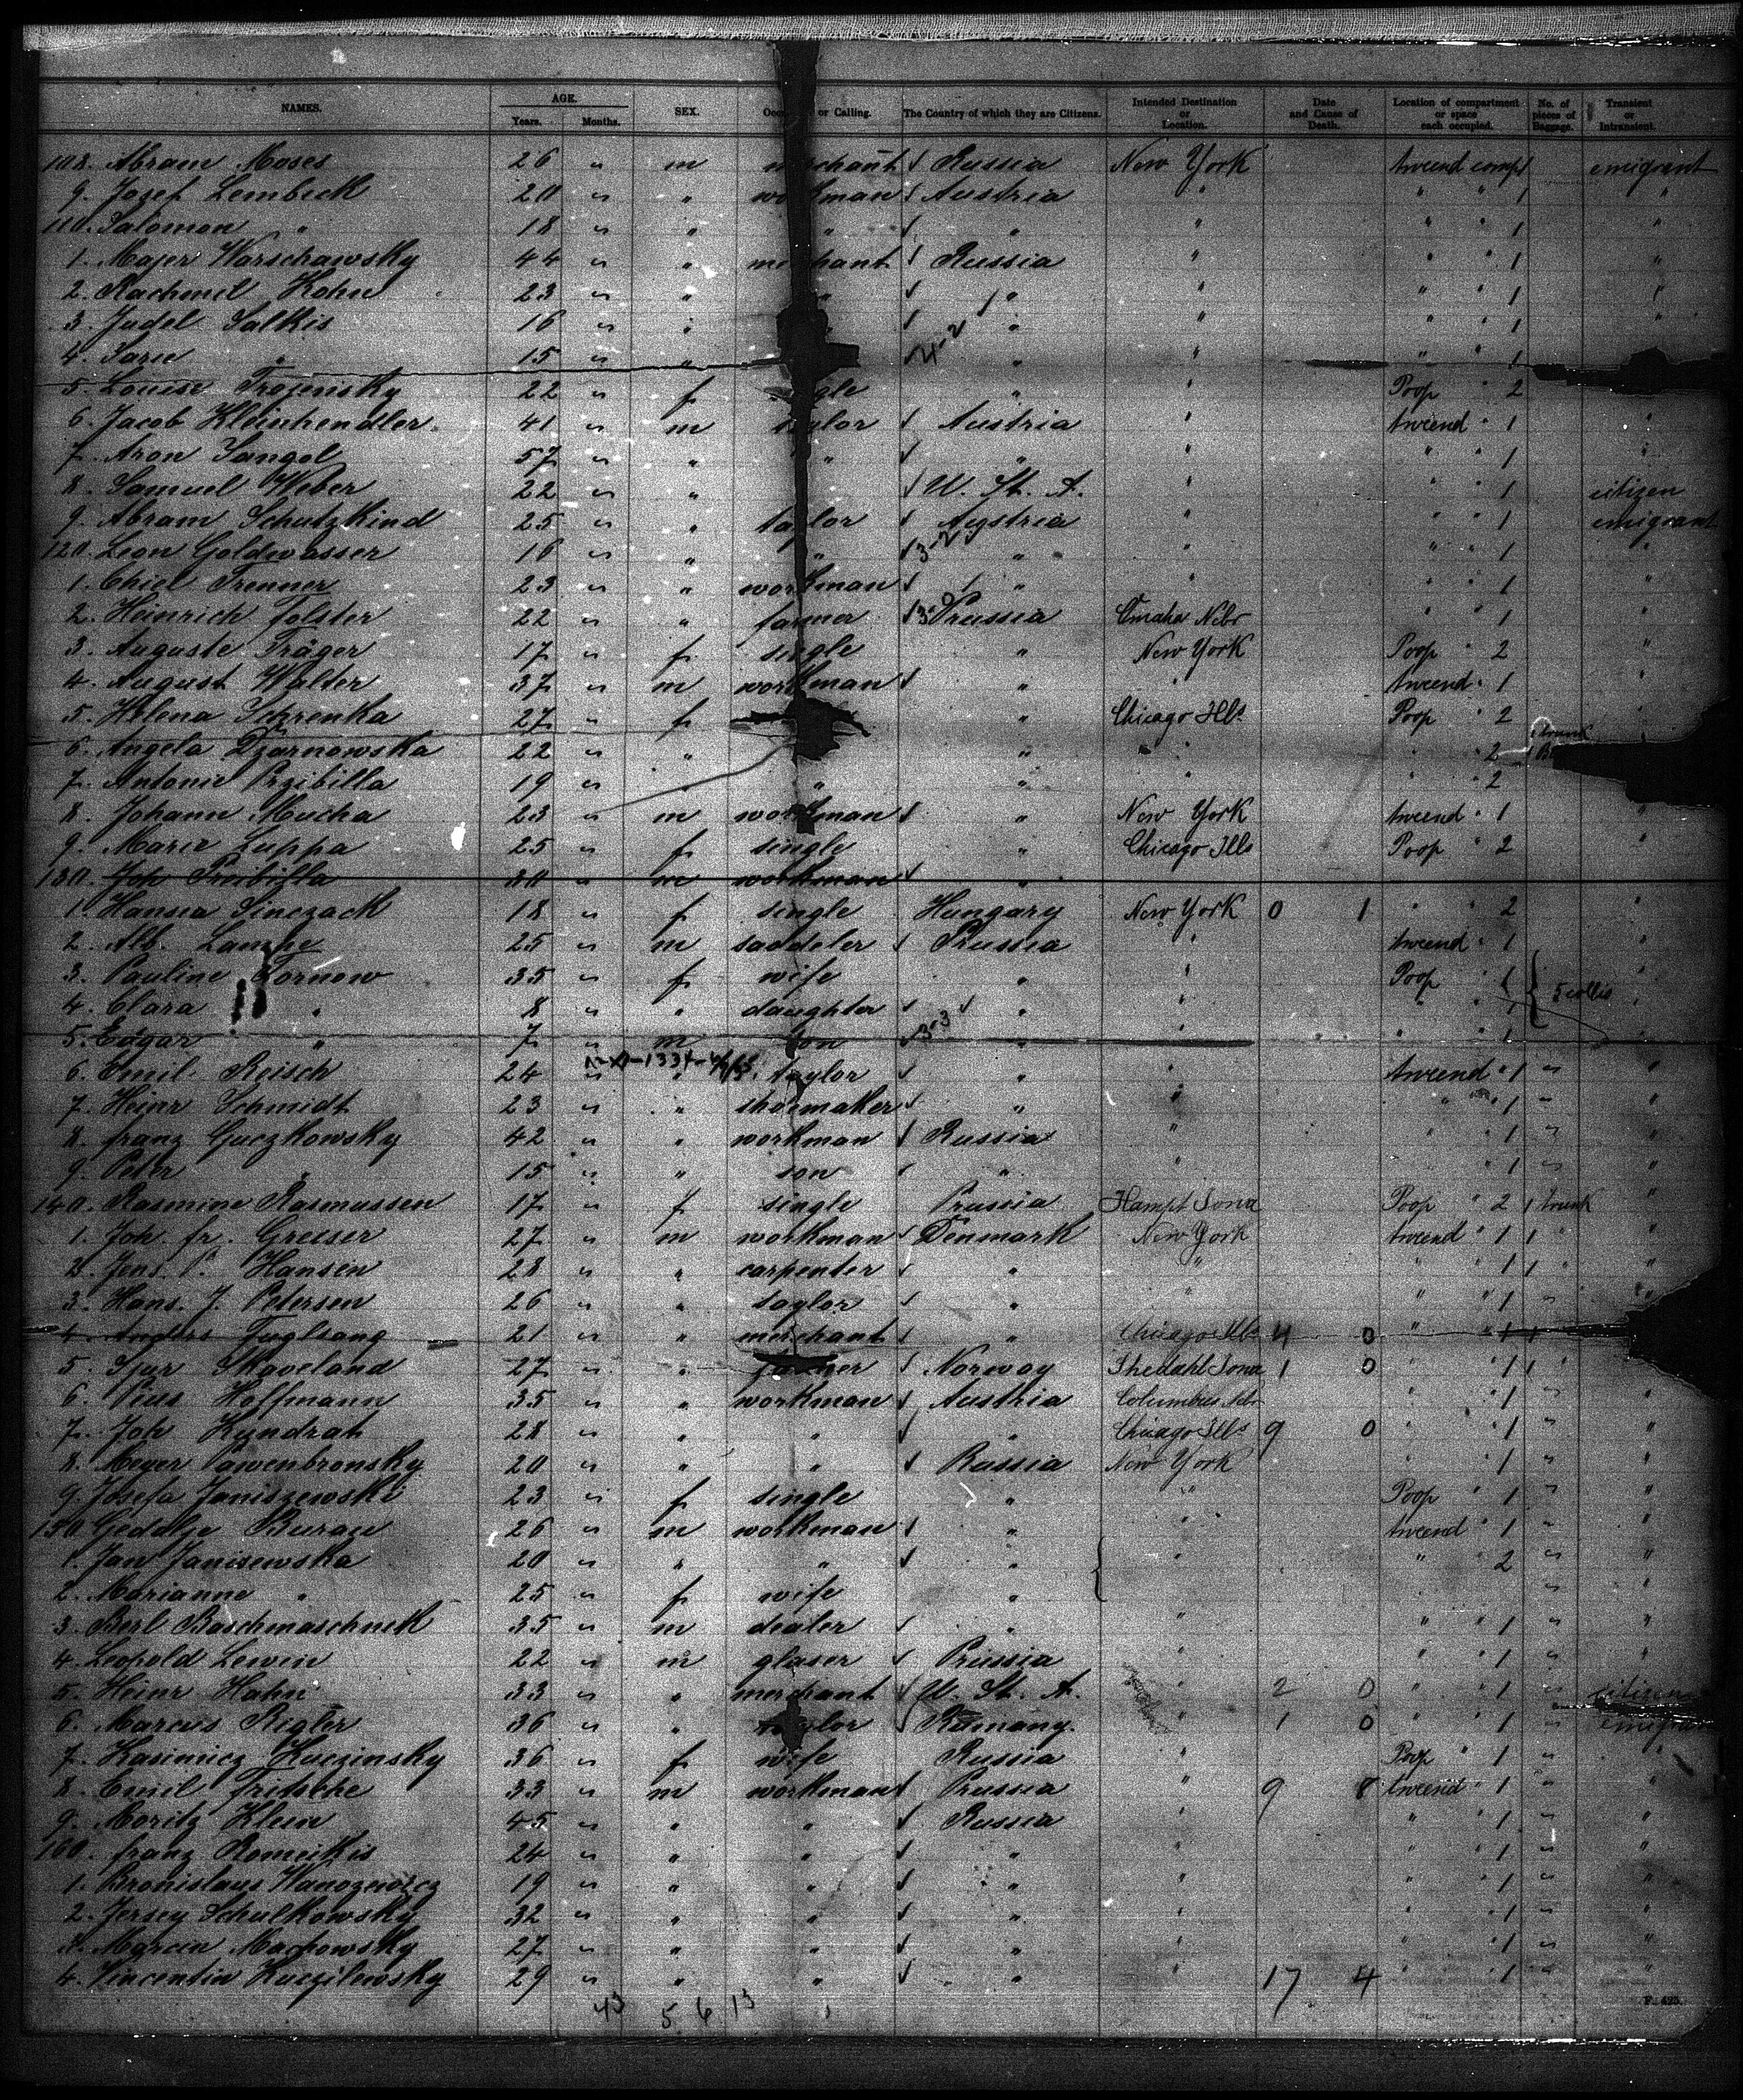 NAMES. AGE. Years. Months. SEX. or Calling. The Country of which they are Citizens. Intended Destination or Location. Date and Cause of Death. Location of compartment or space each occupied. No. of pieces of Baggage. Transient or Intransient.
108. Abram Moses 26 " m merchant Russia New York tweend compt emigrant
9. Josef Lembeck 20 " " workman Austria " " " 1 "
110. Salomon " 18 " " " " " " " 1 "
1. Majer Warschawsky 44 " " merchant Russia " " " 1 "
2. Rachmil Kohn 23 " " " " " " " 1 "
3. Judel Salkis 16 " " " " " " 1 "
4. Sarie " 15 " " 4-2 " " " " 1
5. Louise Trojensky 22 " f single " " Poop " 2
6. Jacob Kleinhendler 41 " m taylor Austria " tweend " 1 "
7. Aron Sangel 57 " " " " " " " 1 "
8. Samuel Weber 22 " " U. St. A. " " " 1 citizen
9. Abram Schutzkind 25 " " taylor Austria " " " 1 emigrant
120. Leon Goldwasser 16 " " " " " " " 1 "
1. Chiel Trenner 23 " " workman " " " " 1 "
2. Heinrich Folster 22 " " farmer Prussia Omaha Nebr " " 1 "
3. Auguste Träger 17 " f single " New York Poop " 2 "
4. August Walter 37 " m workman " " tweend " 1 "
5. Helena Schrenka 27 " f " Chicago Ills Poop " 2 "
6. Angela Dzarnowska 22 " " " " " 2 1 trunk
7. Antonie Przibilla 19 " " " " " 2
8. Johann Mucha 23 " m workman " New York tweend " 1 "
9. Marie Luppa 25 " f single " Chicago Ills Poop " 2 "
130. Joh Przibilla 30 " m workman "
1. Hansea Sinczack 18 " f single Hungary New York 0 1 " " 2 "
2. Alb. 25 " m saddeler Prussia " tweend " 1 "
3. Pauline Tornow 35 " f wife " " Poop " 1 5 collis "
4. Clara " 8 " " daughter " " " " "
5. Edgar " 7 " m son 3-3 " " " " 1 "
6. Emil Reisch 24 " " taylor " " tweend " 1 " "
7. Heinr Schmidt 23 " " shoemaker " " " " 1 " "
8. Franz Guczkowsky 42 " " workman Russia " " " 1 " "
9. Peter " 15 " " son " " " 1 " "
140. Rasmine Rasmussen 17 " f single Prussia Hampt Iowa Poop " 2 1 trunk "
1. Joh. fr. Greiser 27 " m workman Denmark New York tweend " 1 1 " "
2. Jens. P. Hansen 28 " " carpenter " " " " 1 1 " "
3. Hans. J. Petersen 26 " " taylor " " " " 1 " "
4. Anders Fuglsang 21 " " merchant " Chicago Ills 4 0 " " 1 1
5. Sjur Skaveland 27 " " farmer Norway Thedahl Iowa 1 0 " " 1 1 "
6. Pius Hoffmann 35 " " workman Austria Columbus Nebr " " 1 " "
7. Joh Kundrat 28 " " " " Chicago Ills 9 0 " " 1 " "
8. Meyer Pawenbronsky 20 " " " Russia New York " " 1 " "
9. Josefa Janiszewski 23 " f single " " Poop " 1 " "
150. Gedalje Burau 26 " m workman " " tweend " 1 " "
1. Jan Janisewska 20 " " " " " " " 2 " "
2. Marianne " 25 " f wife " " "
3. Berl Baschmaschnik 35 " m dealer " " " " 1 " "
4. Leopold Lewin 22 " m glaser Prussia " " " 1 " "
5. Heinr Hahn 33 " " merchant U. St. A. " 2 0 " " 1 " citizen
6. Marcus Regler 36 " " taylor Rumany. " 1 0 " " 1 " emigrant
7. Kasimicz Kuczinsky 36 " f wife Russia " Poop " 1 " "
8. Emil Fritsche 33 " m workman Prussia " 9 8 tweend " 1 " "
9. Moritz Klein 45 " " " Russia " " " 1 " "
160. Franz Romeikis 24 " " " " " " " 1 " "
1. Bronislaus 19 " " " " " " " 1 " "
2. Jersey Schulkowsky 32 " " " " " " " 1 " "
3. Marcin Machowsky 27 " " " " " " " 1 " "
4. Vincentin Kuczilewsky 29 " " " " " 17 4 " " 1 " "
43 5 6 13